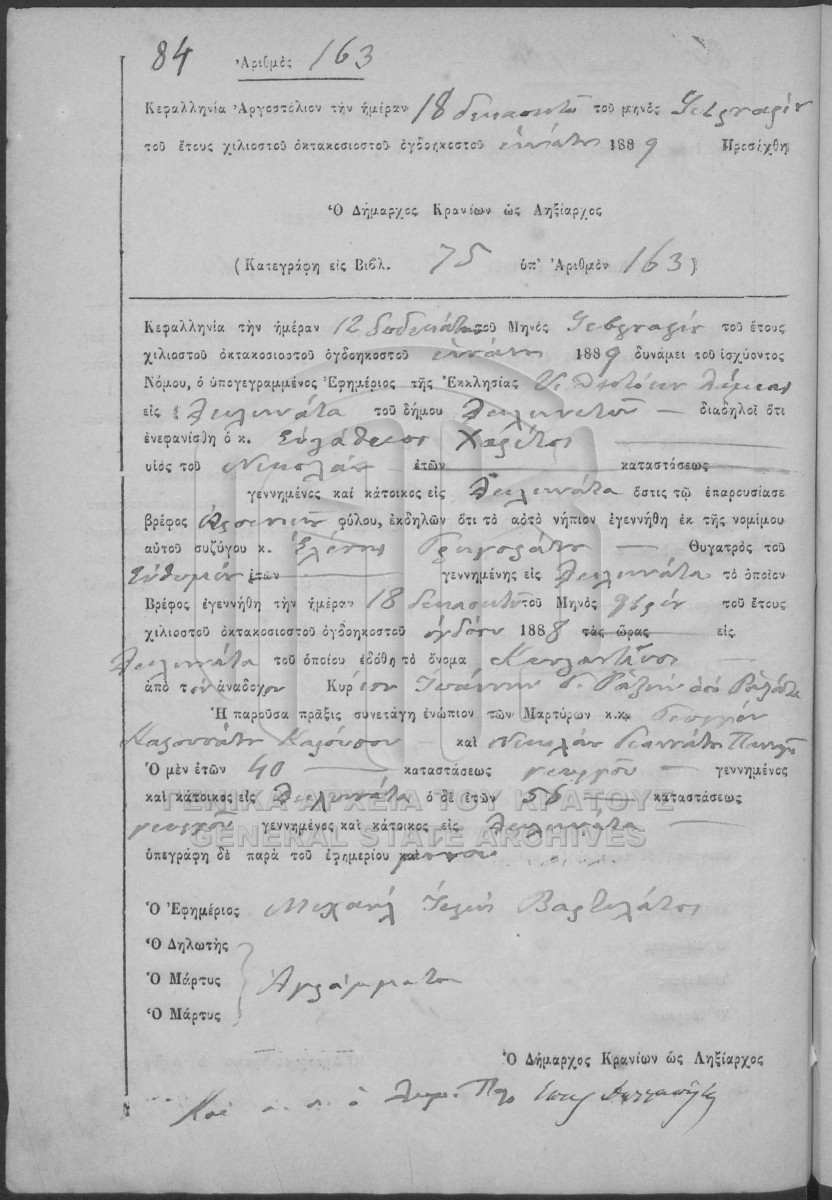 84 Ἀριθμὸς 163
Κεφαλληνία Ἀργοστόλιον τὴν ἡμέραν 18 δεκαοκτὼ τοῦ μηνὸς Φεβρουαρίου
τοῦ ἔτους χιλιοστοῦ ὀκτακοσιοστοῦ ὀγδοηκοστοῦ ἐννάτου 1889 Προσήχθη
Ὁ Δήμαρχος Κρανίων ὡς Ληξίαρχος
(Κατεγράφη εἰς Βιβλ. 75 ὑπ' Ἀριθμὸν 163)
Κεφαλληνία τὴν ἡμέραν 12 δωδεκάτην τοῦ Μηνὸς Φεβρουαρίου τοῦ ἔτους
χιλιοστοῦ ὀκτακοσιοστοῦ ὀγδοηκοστοῦ ἐννάτου 1889 δυνάμει τοῦ ἰσχύοντος
Νόμου, ὁ ὑπογεγραμμένος Ἐφημέριος τῆς Ἐκκλησίας Ὑ. Θεοτόκου
εἰς τοῦ δήμου διαδηλοῖ ὅτι
ἐνεφανίσθη ὁ κ. Εὐστάθιος
υἱὸς τοῦ Νικολάου ἐτῶν καταστάσεως
γεννημένος καὶ κάτοικος εἰς ὅστις τῷ ἐπαρουσίασε
βρέφος ἀρσενικοῦ φύλου, ἐκδηλῶν ὅτι τὸ αὐτὸ νήπιον ἐγεννήθη ἐκ τῆς νομίμου
αὐτοῦ συζύγου κ. Ἑλένης Γρηγοράτου Θυγατρὸς τοῦ
Εὐθυμίου ἐτῶν γεννημένης εἰς τὸ ὁποῖον
Βρέφος ἐγεννήθη τὴν ἡμέραν 18 δεκαοκτὼ τοῦ Μηνὸς 9βρίου τοῦ ἔτους
χιλιοστοῦ ὀκτακοσιοστοῦ ὀγδοηκοστοῦ ὀγδόου 1888 τὰς ὥρας εἰς
τοῦ ὁποίου ἐδόθη τὸ ὄνομα Κωνσταντῖνος
ἀπὸ τὸν ἀνάδοχον Κύριον Ἰωάννην
Ἡ παροῦσα πρᾶξις συνετάγη ἐνώπιον τῶν Μαρτύρων κ.κ. Γεωργίου
Καρούσου καὶ Νικολάου
Ὁ μὲν ἐτῶν 40 καταστάσεως γεωργοῦ γεννημένος
καὶ κάτοικος εἰς ὁ δὲ ἐτῶν 56 καταστάσεως
γεωργοῦ γεννημένος καὶ κάτοικος εἰς
ὑπεγράφη δὲ παρὰ τοῦ ἐφημερίου καὶ μόνου
ΓΕΝΙΚΑ ΑΡΧΕΙΑ ΤΟΥ ΚΡΑΤΟΥΣ
GENERAL STATE ARCHIVES
Ὁ Ἐφημέριος Μιχαὴλ Ἱερεὺς
Ὁ Δηλωτὴς
Ὁ Μάρτυς Ἀγράμματοι
Ὁ Μάρτυς
Ὁ Δήμαρχος Κρανίων ὡς Ληξίαρχος